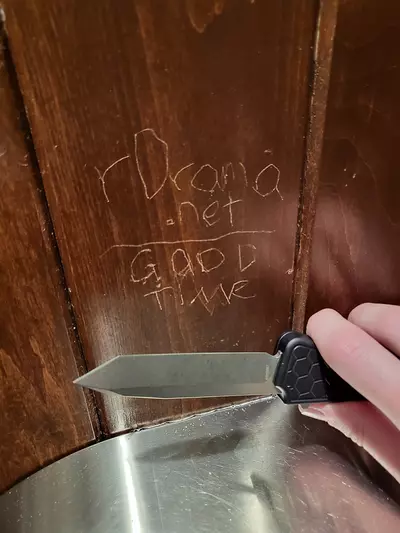 rDrama
.net
GOOD
TIME